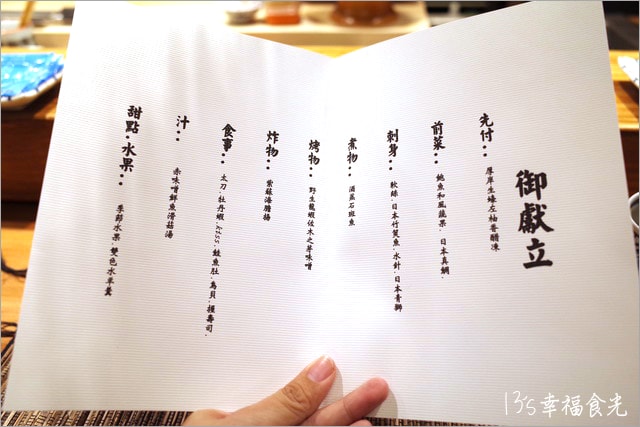 御獻立
先付：厚岸生蠔左柚香醋凍
前菜：鮑魚和風蔬果．日本真鯛．
刺身：軟絲．日本竹筴魚．水針．日本青魽
煮物：酒蒸石斑魚
烤物：野生龍蝦佐木之芽味噌
炸物：紫蘇海膽捲
食事：太刀．牡丹蝦．kiss．鮭魚肚．鳥貝．握壽司．
汁：赤味噌鮮魚滑菇湯
甜點．水果：季節水果．雙色水羊羹
13's幸福食光